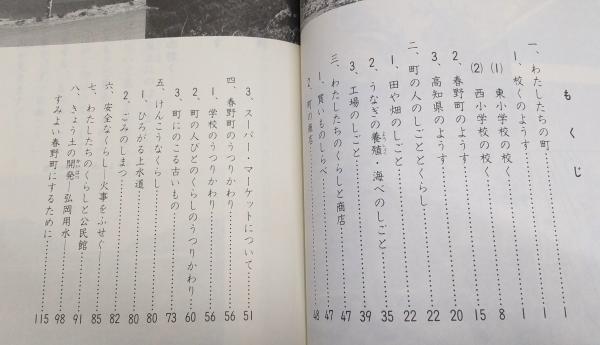 もくじ
一、わたしたちの町……………1
1、校くのようす……………1
(1) 東小学校の校く……………1
(2) 西小学校の校く……………8
2、春野町のようす……………15
3、高知県のようす……………20
二、町の人のしごととくらし……………22
1、田や畑のしごと……………22
2、うなぎの養殖・海べのしごと……………35
3、工場のしごと……………39
三、わたしたちのくらしと商店……………47
1、買いものしらべ……………47
2、町の商店……………48
3、スーパー・マーケットについて……………51
四、春野町のうつりかわり……………56
1、学校のうつりかわり……………56
2、町の人びとのくらしのうつりかわり……………60
3、町にのこる古いもの……………73
五、けんこうなくらし……………80
1、ひろがる上水道……………80
2、ごみのしまつ……………82
六、安全なくらし―火事をふせぐ―……………85
七、わたしたちのくらしと公民館……………91
八、きょう土の開発―弘岡用水―……………98
すみよい春野町にするために……………115